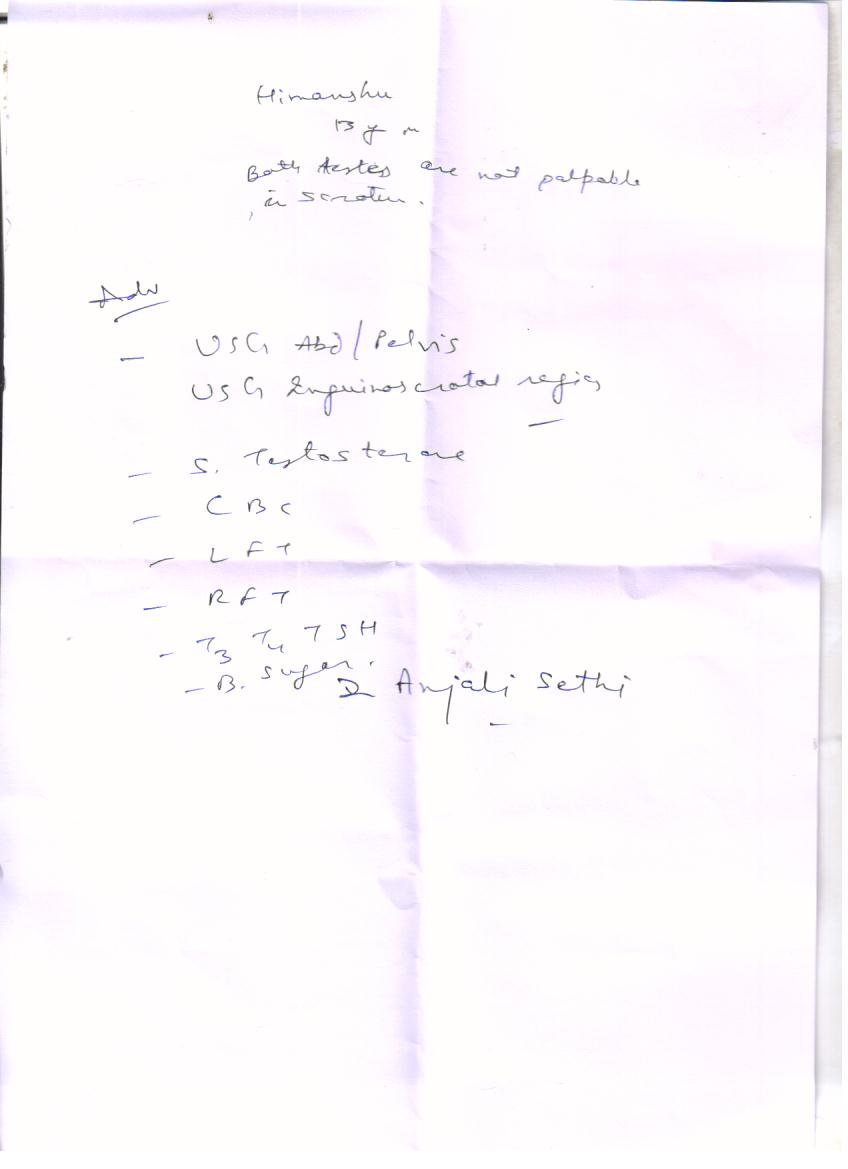 Himanshu
13 y m
Both testes are not palpable
in scrotum.
Adv
- USG Abd/Pelvis
USG Inguinoscrotal region
- S. Testosterone
- CBC
- LFT
- RFT
- T3 T4 TSH
- B. Sugar.
Dr Anjali Sethi